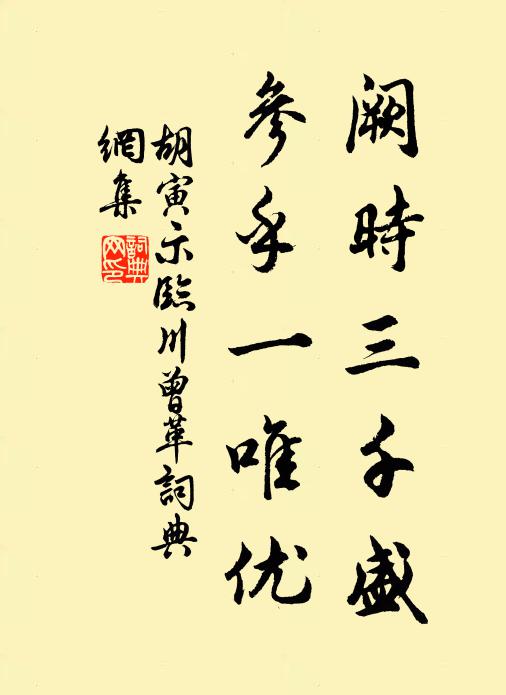 阙時三千盛
參乎一唯优
胡寅示臨川曾革詞典
網集
詞典网印